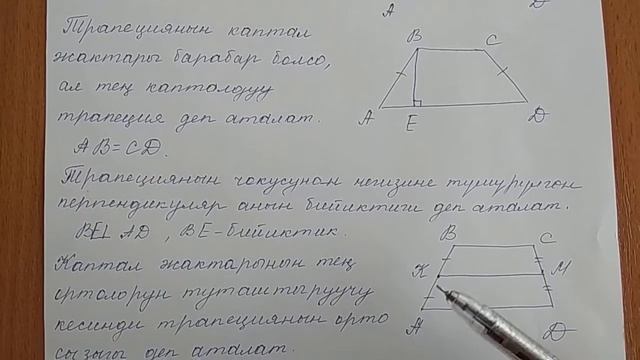 A D
Трапециянын каптал
жактары барабар болсо,
ал тең капталдуу
трапеция деп аталат.
AB=CD.
B C
A E D
Трапециянын чокусунан негизине түшүрүлгөн
перпендикуляр анын бийиктиги деп аталат.
BE⊥AD, BE-бийиктик.
Каптал жактарынын тең
ортолорун туташтыруучу
кесинди трапециянын орто
сызыгы деп аталат.
B C
K M
A D